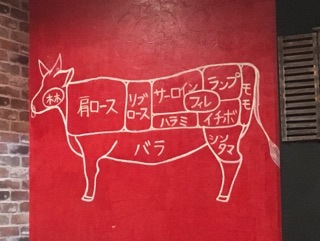 林
肩ロース
リブ
ロース
サーロイン
フィレ
ハラミ
ランプ
イチボ
モモ
シン
タマ
バラ